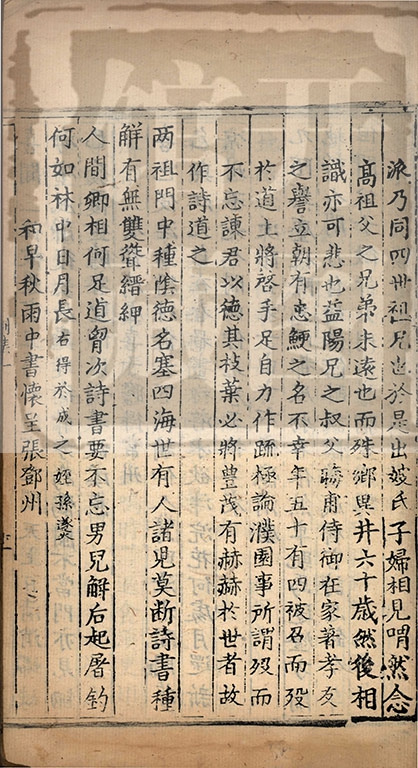 派乃同四世祖兄也於是出嫂氏子婦相見喟然念
高祖父之兄弟未遠也而殊鄉異井六十歲然後相
識亦可悲也益陽兄之叔父疇甫侍御在家著孝友
之譽立朝有忠鯁之名不幸年五十有四被召而歿
於道士將啓手足自力作疏極論濮園事所謂歿而
不忘諫君以德其枝葉必將豐茂有赫赫於世者故
作詩道之
两祖門中種陰德名塞四海世有人諸兒莫斷詩書種
解有無雙聳縉紳
人間卿相何足道胷次詩書要不忘男兒解后起屠釣
何如林中日月長右得於成之姪孫㷍
和早秋雨中書懷呈張鄧州